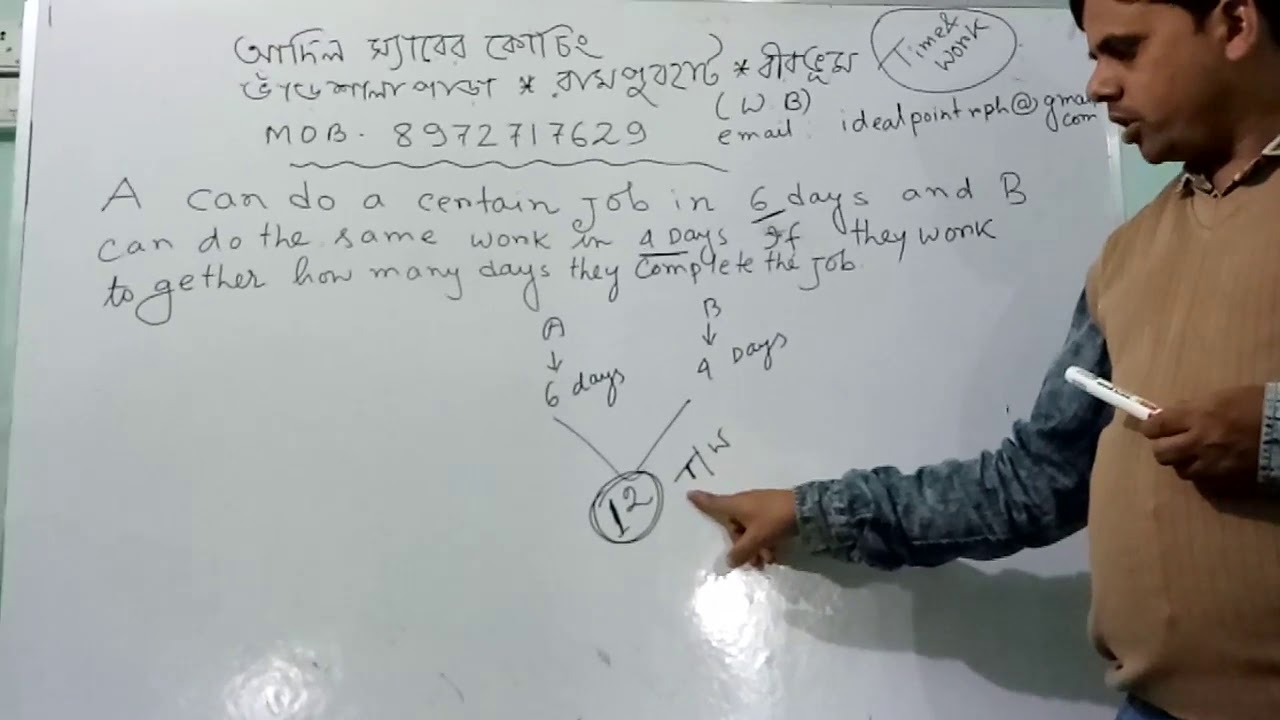 আদিল স্যারের কোচিং
ভাঁড়শালাপাড়া * রামপুরহাট * বীরভূম
(W.B)
Time &
work
MOB - 8972717629
email : idealpointrph@gmail
com
A can do a certain job in 6 days and B
can do the same work in 4 Days If they work
together how many days they complete the job.
A
B
6 days
4 Days
12 T/W